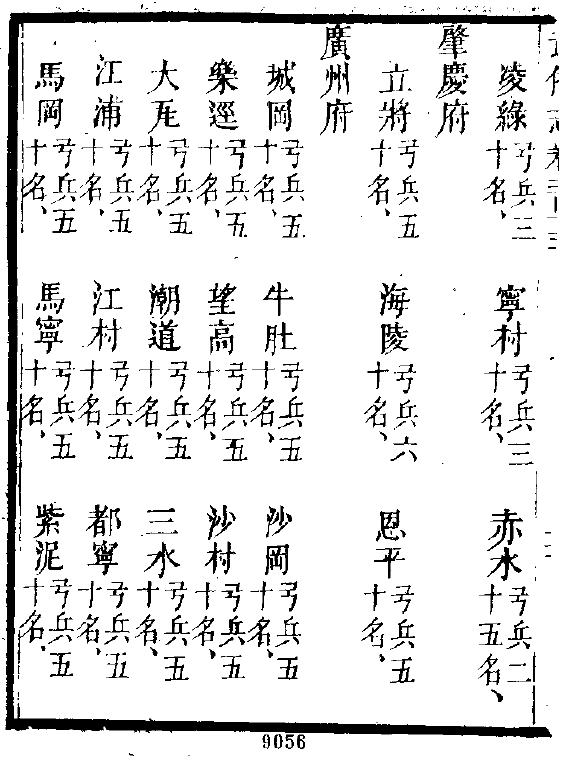 凌綠弓兵三十名、寧村弓兵三十名、赤水弓兵二十五名、
肇慶府
立將弓兵五十名、海陵弓兵六十名、恩平弓兵五十名、
廣州府
城岡弓兵五十名、牛肚弓兵五十名、沙岡弓兵五十名、
樂逕弓兵五十名、望高弓兵五十名、沙村弓兵五十名、
大弓兵五十名、潮道弓兵五十名、三水弓兵五十名、
江浦弓兵五十名、江村弓兵五十名、都寧弓兵五十名、
馬岡弓兵五十名、馬寧弓兵五十名、紫泥弓兵五十名、
9056